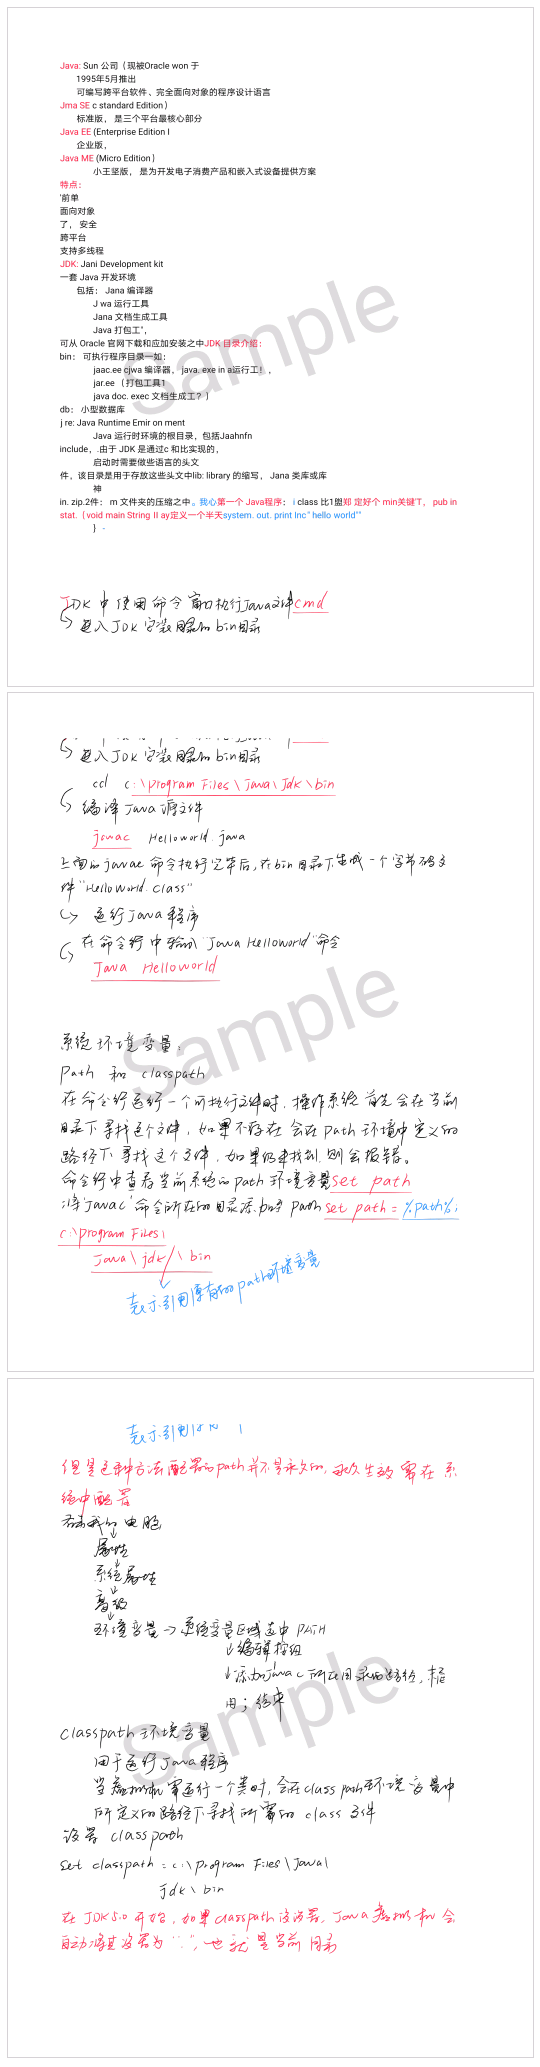 Java: Sun 公司（现被Oracle won 于
1995年5月推出
可编写跨平台软件、完全面向对象的程序设计语言
Jma SE c standard Edition）
标准版， 是三个平台最核心部分
Java EE (Enterprise Edition I
企业版，
Java ME (Micro Edition）
小王坚版， 是为开发电子消费产品和嵌入式设备提供方案
特点：
'前单
面向对象
了， 安全
跨平台
支持多线程
JDK: Jani Development kit
一套 Java 开发环境
包括： Jana 编译器
J wa 运行工具
Jana 文档生成工具
Java 打包工",
可从 Oracle 官网下载和应加安装之中JDK 目录介绍：
bin： 可执行程序目录一如：
jaac.ee cjwa 编译器， java. exe in a运行工！，
jar.ee（打包工具1
java doc. exec 文档生成工？）
db： 小型数据库
j re: Java Runtime Emir on ment
Java 运行时环境的根目录，包括Jaahnfn
include，.由于 JDK 是通过c 和比实现的，
启动时需要做些语言的头文
件，该目录是用于存放这些头文中lib: library 的缩写， Jana 类库或库
神
in. zip.2件： m 文件夹的压缩之中。我心第一个 Java程序： i class 比1盟郑 定好个 min关键'T， pub in
stat.（void main String II ay定义一个半天system. out. print Inc" hello world""
} -
JDK 中使用命令窗口执行Java文件cmd
进入JDK安装目录的bin目录
Sample
进入JDK安装目录的bin目录
cd c:\program Files\Java\Jdk\bin
编译Java源文件
javac Helloworld.java
上面的javac命令执行完毕后,在bin目录下生成一个字节码文
件"HelloWorld.class"
运行Java程序
在命令行中输入"Java Helloworld"命令
Java Helloworld
系统环境变量:
Path 和 classpath
在命令行运行一个可执行文件时,操作系统首先会在当前
目录下寻找这个文件,如果不存在会在path环境中定义的
路径下寻找这个文件,如果仍未找到,则会报错。
命令行中查看当前系统的path环境变量set path
将'javac'命令所在的目录添加到Path set path = %path%;
c:\program Files\
Java\jdk\bin
表示引用原有的path环境变量
Sample
表示引用
但是这种方法配置的path并不是永久的,永久生效需在系
统中配置
右击我的电脑
属性
系统属性
高级
环境变量→系统变量区域选中PATH
编辑按钮
添加javac所在目录的路径,末尾
用;结束
classpath环境变量
用于运行Java程序
当虚拟机需运行一个类时,会在classpath环境变量中
所定义的路径下寻找所需的class文件
设置 classpath
set classpath = c:\program Files\Java\
jdk\bin
在JDK5.0开始,如果classpath没设置,Java虚拟机会
自动将其设置为".",也就是当前目录
Sample